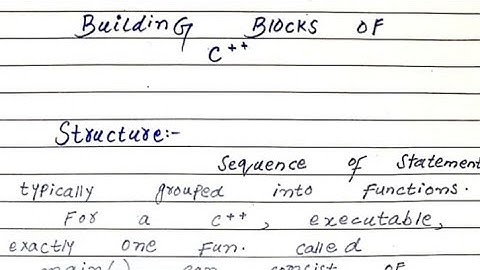 Building Blocks of
C++
Structure:-
Sequence of Statement
typically grouped into functions.
For a C++, executable,
exactly one fun. called
main() can consist of